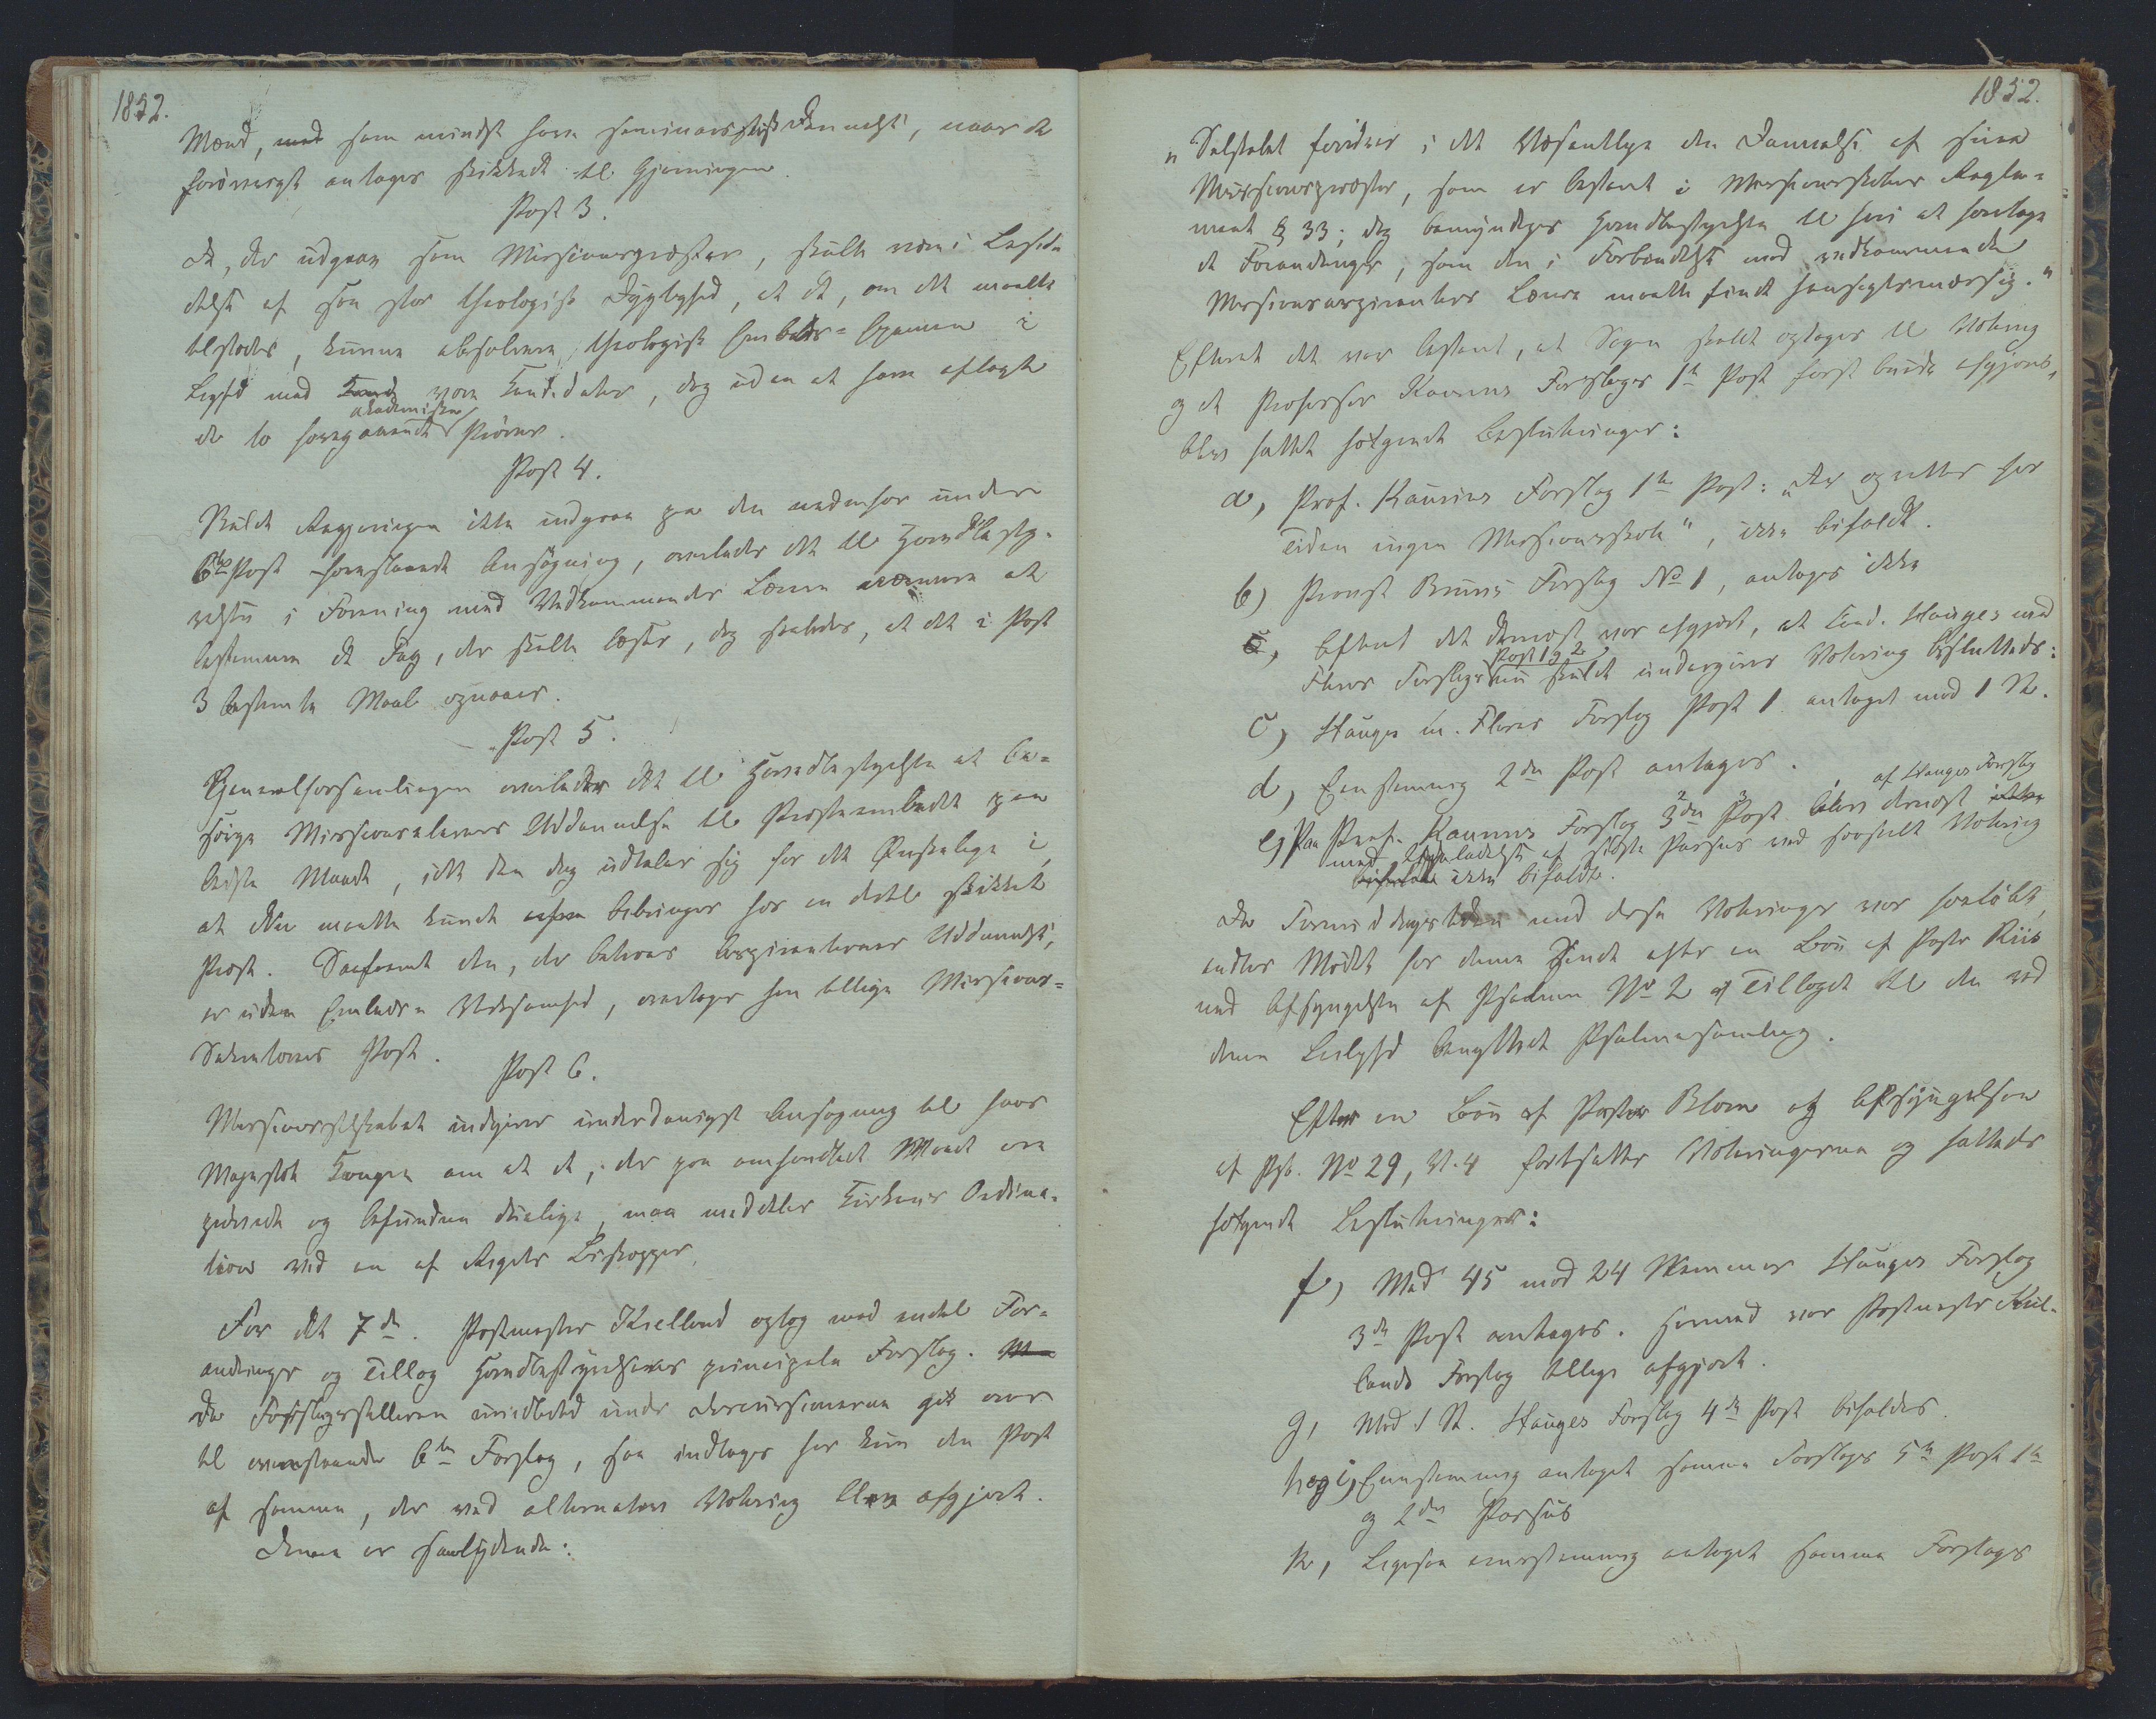 1852.
Mænd, med som mindst have seminaristisk Dannelse, naar de
forøvrigt antages skikkede til Gjerningen.
Post 3.
De, der udgaae som Missionspræster, skulle være i Besid-
delse af saa stor theologisk Dygtighed, at de, om det maatte
tilstedes, kunne absolvere theologisk Embeds-Examen i
Lighed med Cand vore Candidater, dog uden at have aflagt
akademiske
de to foregaaende Prøver.
Post 4.
Skulde Regjeringen ikke indgaae paa den nedenfor under
6te Post foreslaaede Ansøgning, overlades det til Hovedbesty-
relsen i Forening med Vedkommende Lærere nærmere at
bestemme de Fag, der skulle læses, dog saaledes, at det i Post
3 bestemte Maal opnaaes.
Post 5.
Generalforsamlingen overlader det til Hovedbestyrelsen at be-
sørge Missionselevernes Uddannelse til Præsteembedet paa
bedste Maade, idet den dog udtaler sig for det Ønskelige i,
at den maatte kunde bibringes hos en dertil skikket
Præst. Saafremt den, der betroes Aspiranternes Uddannelse,
er uden Embeds Virksomhed, overtager han tillige Missions-
Secretairens Post.
Post 6.
Missionsselskabet indgiver underdanigst Ansøgning til Hans
Majestæt Kongen om at de, der paa omhandlede Maade ere
prøvede og befundne duelige, maa meddeles Kirkens Ordina-
tion ved en af Rigets Biskopper.
For det 7de. Postmester Kielland optog med endel For-
andringer og Tillæg Hovedbestyrelsens principale Forslag.
Da Forslagsstilleren imidlertid under Discussionerne gik over
til ovenstaaende 6te Forslag, saa indtages her kun den Post
af samme, der ved alternativ Votering blev afgjort.
Denne er saalydende:
1852.
„Selskabet fordrer i det Væsentlige den Dannelse af sine
Missionspræster, som er bestemt i Missionsskolens Regle-
ment § 33; dog bemyndiges Hovedbestyrelsen til heri at foretage
de Forandringer, som den i Forbindelse med vedkommende
Missionsaspiranters Lærere maatte finde hensigtsmæssig."
Efterat det var bestemt, at Sagen skulde optages til Votering
og at Professor Kaurins Forslags 1te Post først burde afgjøres,
blev fattet følgende Beslutninger:
a, Prof. Kaurins Forslag 1te Post: „Der oprettes for
Tiden ingen Missionsskole", ikke bifaldt.
b) Provst Bruns Forslag No 1, antages ikke
c, Efterat det dernæst var afgjort, at Cand. Hauges med
Post 1 og 2
Fleres Forslags nu skulde undergives Votering besluttedes:
c, Hauges m. Fleres Forslag Post 1 antaget mod 1 St.
d, Eenstemmig 2den Post antages.
af Hauges Forslag
e, Paa Prof. Kaurins Forslag 3die Post blev dernæst ikke
med Udeladelse af sidste Passus ved særskilt Votering
ikke bifaldt.
Da Formiddagstiden med disse Voteringer var forløbet,
endtes Mødet for denne Gang efter en Bøn af Pastor Riis
med Afsyngelsen af Psalmen No 2 af Tillæget til den ved
denne Leilighed benyttede Psalmesamling.
Efter en Bøn af Pastor Blom og Afsyngelsen
af Ps. No 29, V. 4 fortsattes Voteringerne og fattedes
følgende Beslutninger:
f, Med 45 mod 24 Stemmer Hauges Forslag
3de Post antages. Hermed var Postmester Kiel-
lands Forslag tillige afgjort.
g, Mod 1 St. Hauges Forslag 4de Post bifaldes.
h og i, Eenstemmig antaget samme Forslags 5te Post 1te
og 2den Passus
k, Ligesaa eenstemmig antaget samme Forslags